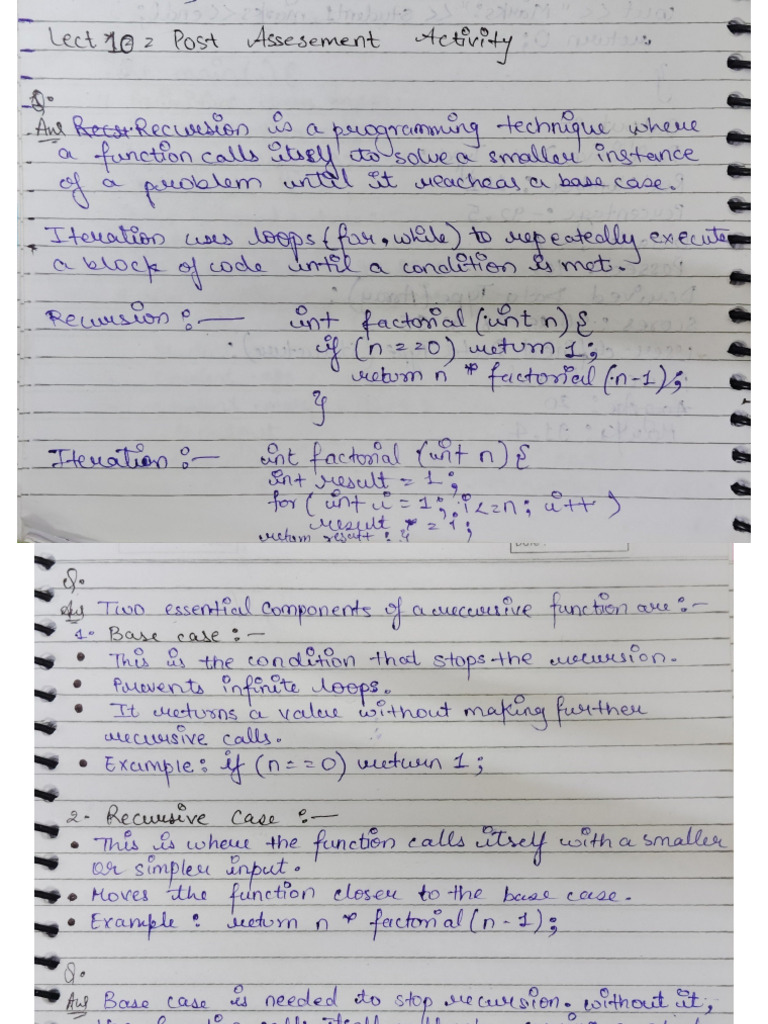 Lect 10 : Post Assesement Activity
Q.
Ans Recursion is a programming technique where
a function calls itself to solve a smaller instance
of a problem until it reacheas a base case.
Iteration uses loops (for, while) to repeatedly execute
a block of code until a condition is met.
Recursion :— int factorial (int n) {
if (n == 0) return 1;
return n * factorial (n-1);
}
Iteration :— int factorial (int n) {
int result = 1;
for ( int i = 1; i <= n; i++ )
result * = i;
return result ; }
Q.
Ans Two essential components of a reccursive function are :—
1. Base case :—
• This is the condition that stops the recursion.
• Prevents infinite loops.
• It returns a value without making further
recursive calls.
• Example : if (n == 0) return 1;
2. Recursive case :—
• This is where the function calls itself with a smaller
or simpler input.
• Moves the function closer to the base case.
• Example : return n * factorial (n - 1);
Q.
Ans Base case is needed to stop recursion. without it,